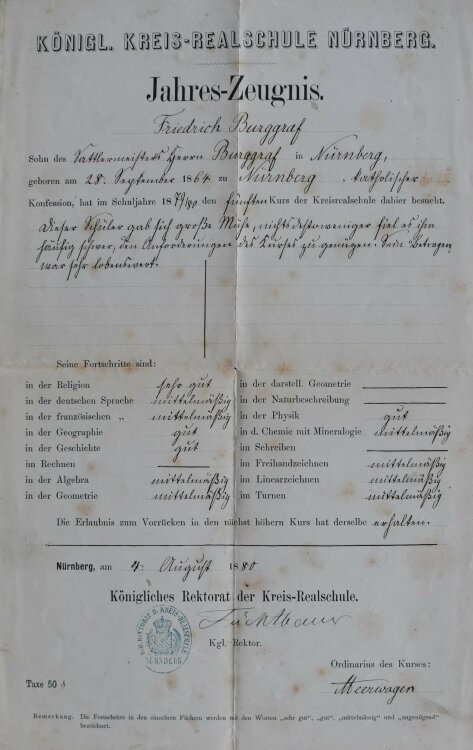 KÖNIGL. KREIS-REALSCHULE NÜRNBERG.
Jahres-Zeugnis.
Friedrich Burggraf
Sohn des Sattlermeisters Herrn Burggraf in Nürnberg,
geboren am 28. September 1864 zu Nürnberg, katholischer
Konfession, hat im Schuljahre 1879/80 den fünften Kurs der Kreisrealschule dahier besucht.
Dieser Schüler gab sich große Mühe, nichtsdestoweniger fiel es ihm
häufig schwer, den Anforderungen des Kurses zu genügen. Sein Betragen
war sehr lobenswert.
Seine Fortschritte sind:
in der Religion sehr gut
in der deutschen Sprache mittelmäßig
in der französischen „ mittelmäßig
in der Geographie gut
in der Geschichte gut
im Rechnen
in der Algebra mittelmäßig
in der Geometrie mittelmäßig
in der darstell. Geometrie
in der Naturbeschreibung
in der Physik gut
in d. Chemie mit Mineralogie mittelmäßig
im Schreiben
im Freihandzeichnen mittelmäßig
im Linearzeichnen mittelmäßig
im Turnen mittelmäßig
Die Erlaubnis zum Vorrücken in den nächst höhern Kurs hat derselbe erhalten.
Nürnberg, am 4. August 1880
Königliches Rektorat der Kreis-Realschule.
Kgl. Rektor.
KREIS-REALSCHULE
NÜRNBERG
Ordinarius des Kurses:
Meerwagen
Taxe 50 ₰
Bemerkung. Die Fortschritte in den einzelnen Fächern werden mit den Worten „sehr gut", „gut", „mittelmässig" und „ungenügend"
bezeichnet.